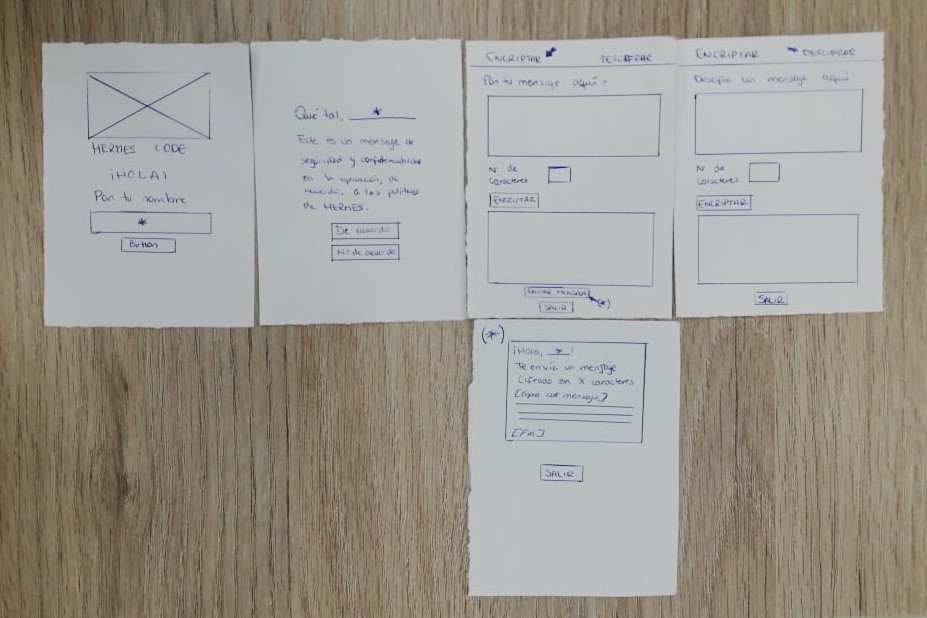 HERMES CODE
¡HOLA!
Pon tu nombre
*
Button
Qué tal, *
Este es un mensaje de
seguridad y confidencialidad
en la operación, de
acuerdo, a las políticas
de HERMES.
De acuerdo
No de acuerdo
ENCRIPTAR DESCIFRAR
Pon tu mensaje aquí:
Nº de
caracteres
ENCRIPTAR
ENVIAR MENSAJE
(*)
SALIR
ENCRIPTAR DESCIFRAR
Descifra un mensaje aquí:
Nº de
caracteres
ENCRIPTAR
SALIR
(*)
¡Hola, *!
Te envía un mensaje
cifrado en X caracteres
mensaje]
[Fin]
SALIR